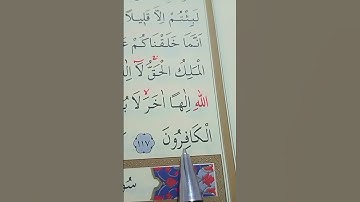 لَبِثْتُمْ اِلَّا قَلٖيلاً
اَنَّمَا خَلَقْنَاكُمْ
الْمَلِكُ الْحَقُّۚ لَٓا
اللّٰهِ اِلٰهاً اٰخَرَۙ لَا
الْكَافِرُونَ ﴿١١٧﴾